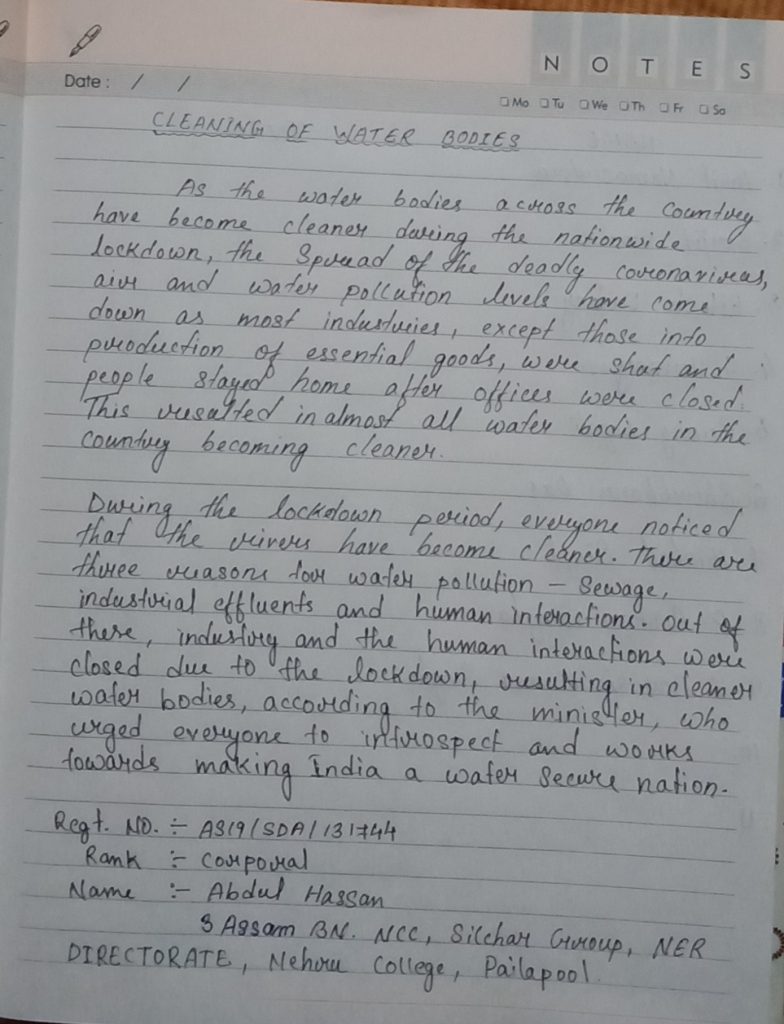 NOTES
Date : / /
Mo Tu We Th Fr Sa
CLEANING OF WATER BODIES
As the water bodies across the country
have become cleaner during the nationwide
lockdown, the Spread of the deadly coronavirus,
air and water pollution levels have come
down as most industries, except those into
production of essential goods, were shut and
people stayed home after offices were closed.
This resulted in almost all water bodies in the
country becoming cleaner.
During the lockdown period, everyone noticed
that the rivers have become cleaner. There are
three reasons for water pollution – Sewage,
industrial effluents and human interactions. Out of
these, industry and the human interactions were
closed due to the lockdown, resulting in cleaner
water bodies, according to the minister, who
urged everyone to introspect and works
towards making India a water secure nation.
Regt. NO. :- AS19/SDA/131744
Rank :- Corporal
Name :- Abdul Hassan
3 Assam BN. NCC, Silchar Group, NER
DIRECTORATE, Nehru College, Pailapool.